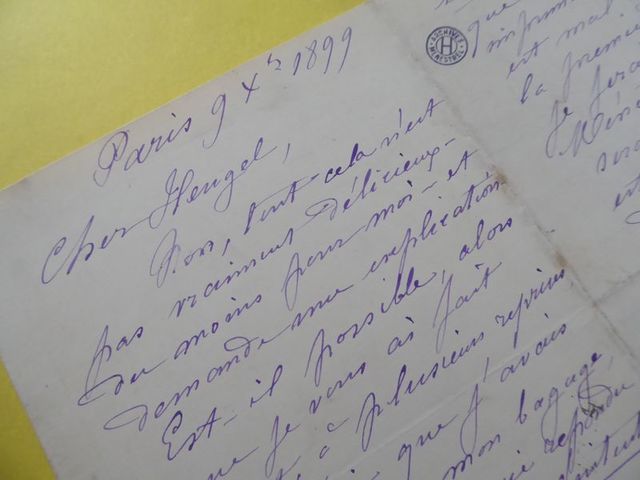 Paris 9 Xbr 1899
Cher Heugel,
Non, tout cela n'est
pas vraiment délicieux-
du moins pour moi - et
demande une explication.
Est-il possible, alors
que je vous ai fait
à plusieurs reprises,
que j'avais
mon bagage,
répondu
que
imprim
est mal
la premier
Je ferai
ARCHIVES
H
HEUGEL